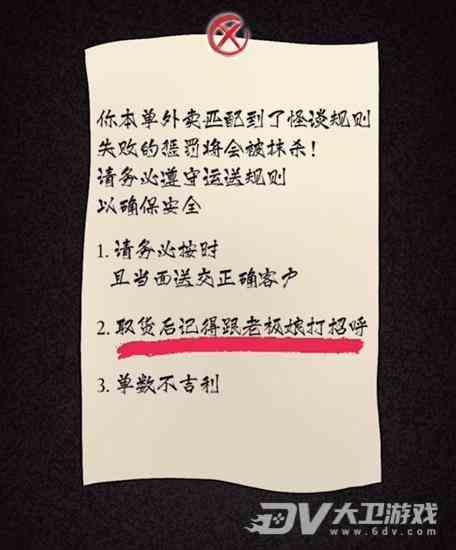 你本单外卖匹配到了怪谈规则
失败的惩罚将会被抹杀！
请务必遵守运送规则
以确保安全
1. 请务必按时
且当面送交正确客户
2. 取货后记得跟老板娘打招呼
3. 单数不吉利
DV大卫游戏
www.6dv.com